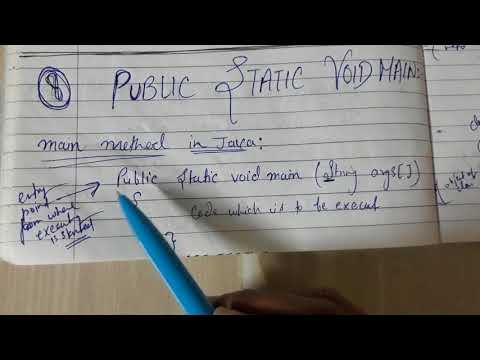 8 PUBLIC STATIC VOID MAIN:
main method in Java:
Public Static void main (String args[])
{
Code which is to be execut
}
entry
point
from where
execut
is started